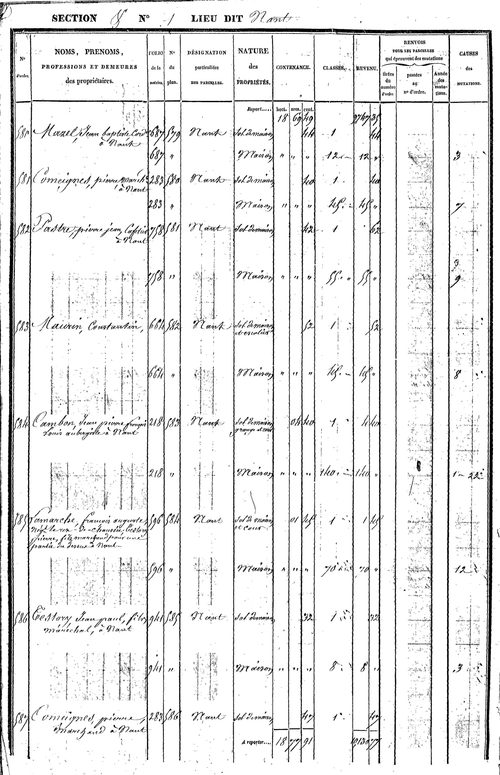 SECTION N° 1 LIEU DIT Nant
N° d'ordre.
NOMS, PRENOMS,
PROFESSIONS ET DEMEURES
des propriétaires.
FOLIO de la matrice.
N° du plan.
DÉSIGNATION
particulière
DES PARCELLES.
NATURE
des
PROPRIÉTÉS.
CONTENANCE.
CLASSES.
REVENU.
RENVOIS
POUR LES PARCELLES
qui éprouvent des mutations
CAUSES
des
MUTATIONS.
Report..... 18 69 49
580 Mazel, Jean baptiste 687 579 Nant Sol de maison 44 1
à Nant
687 " Maison " " " 12 12 " 3
581 Comeignes, pierre 283 580 Nant Sol de maison 40 1 40
à Nant
283 " Maison " " " 45 45 " 7
582 Pastre, pierre jean 758 581 Nant Sol de maison 62 1 62
à Nant
3
758 " Maison " " " 55 55 " 9
583 Maurin Constantin, 664 582 Nant Sol de maison 52 1 52
664 " Maison " " " 45 45 " 8
584 Cambon, Jean pierre françois 218 583 Nant Sol de maison 04 40 1 4 40
Louis aubergiste à Nant
218 " Maison " " " 140 140 " 1 22
585 Lamarche, francois auguste 596 584 Nant Sol de maison 01 45 1 1 45
et cour
partie du dessus à Nant
596 " Maison " " " 70 70 " 12
586 Testory Jean paul, fils 941 585 Nant Sol de maison 32 1 32
maréchal, à Nant
941 " Maison " " " 8 8 " 3
587 Comeignes, pierre, 283 586 Nant Sol de maison 47 1 47
Marchand à Nant
A reporter... 18 77 91